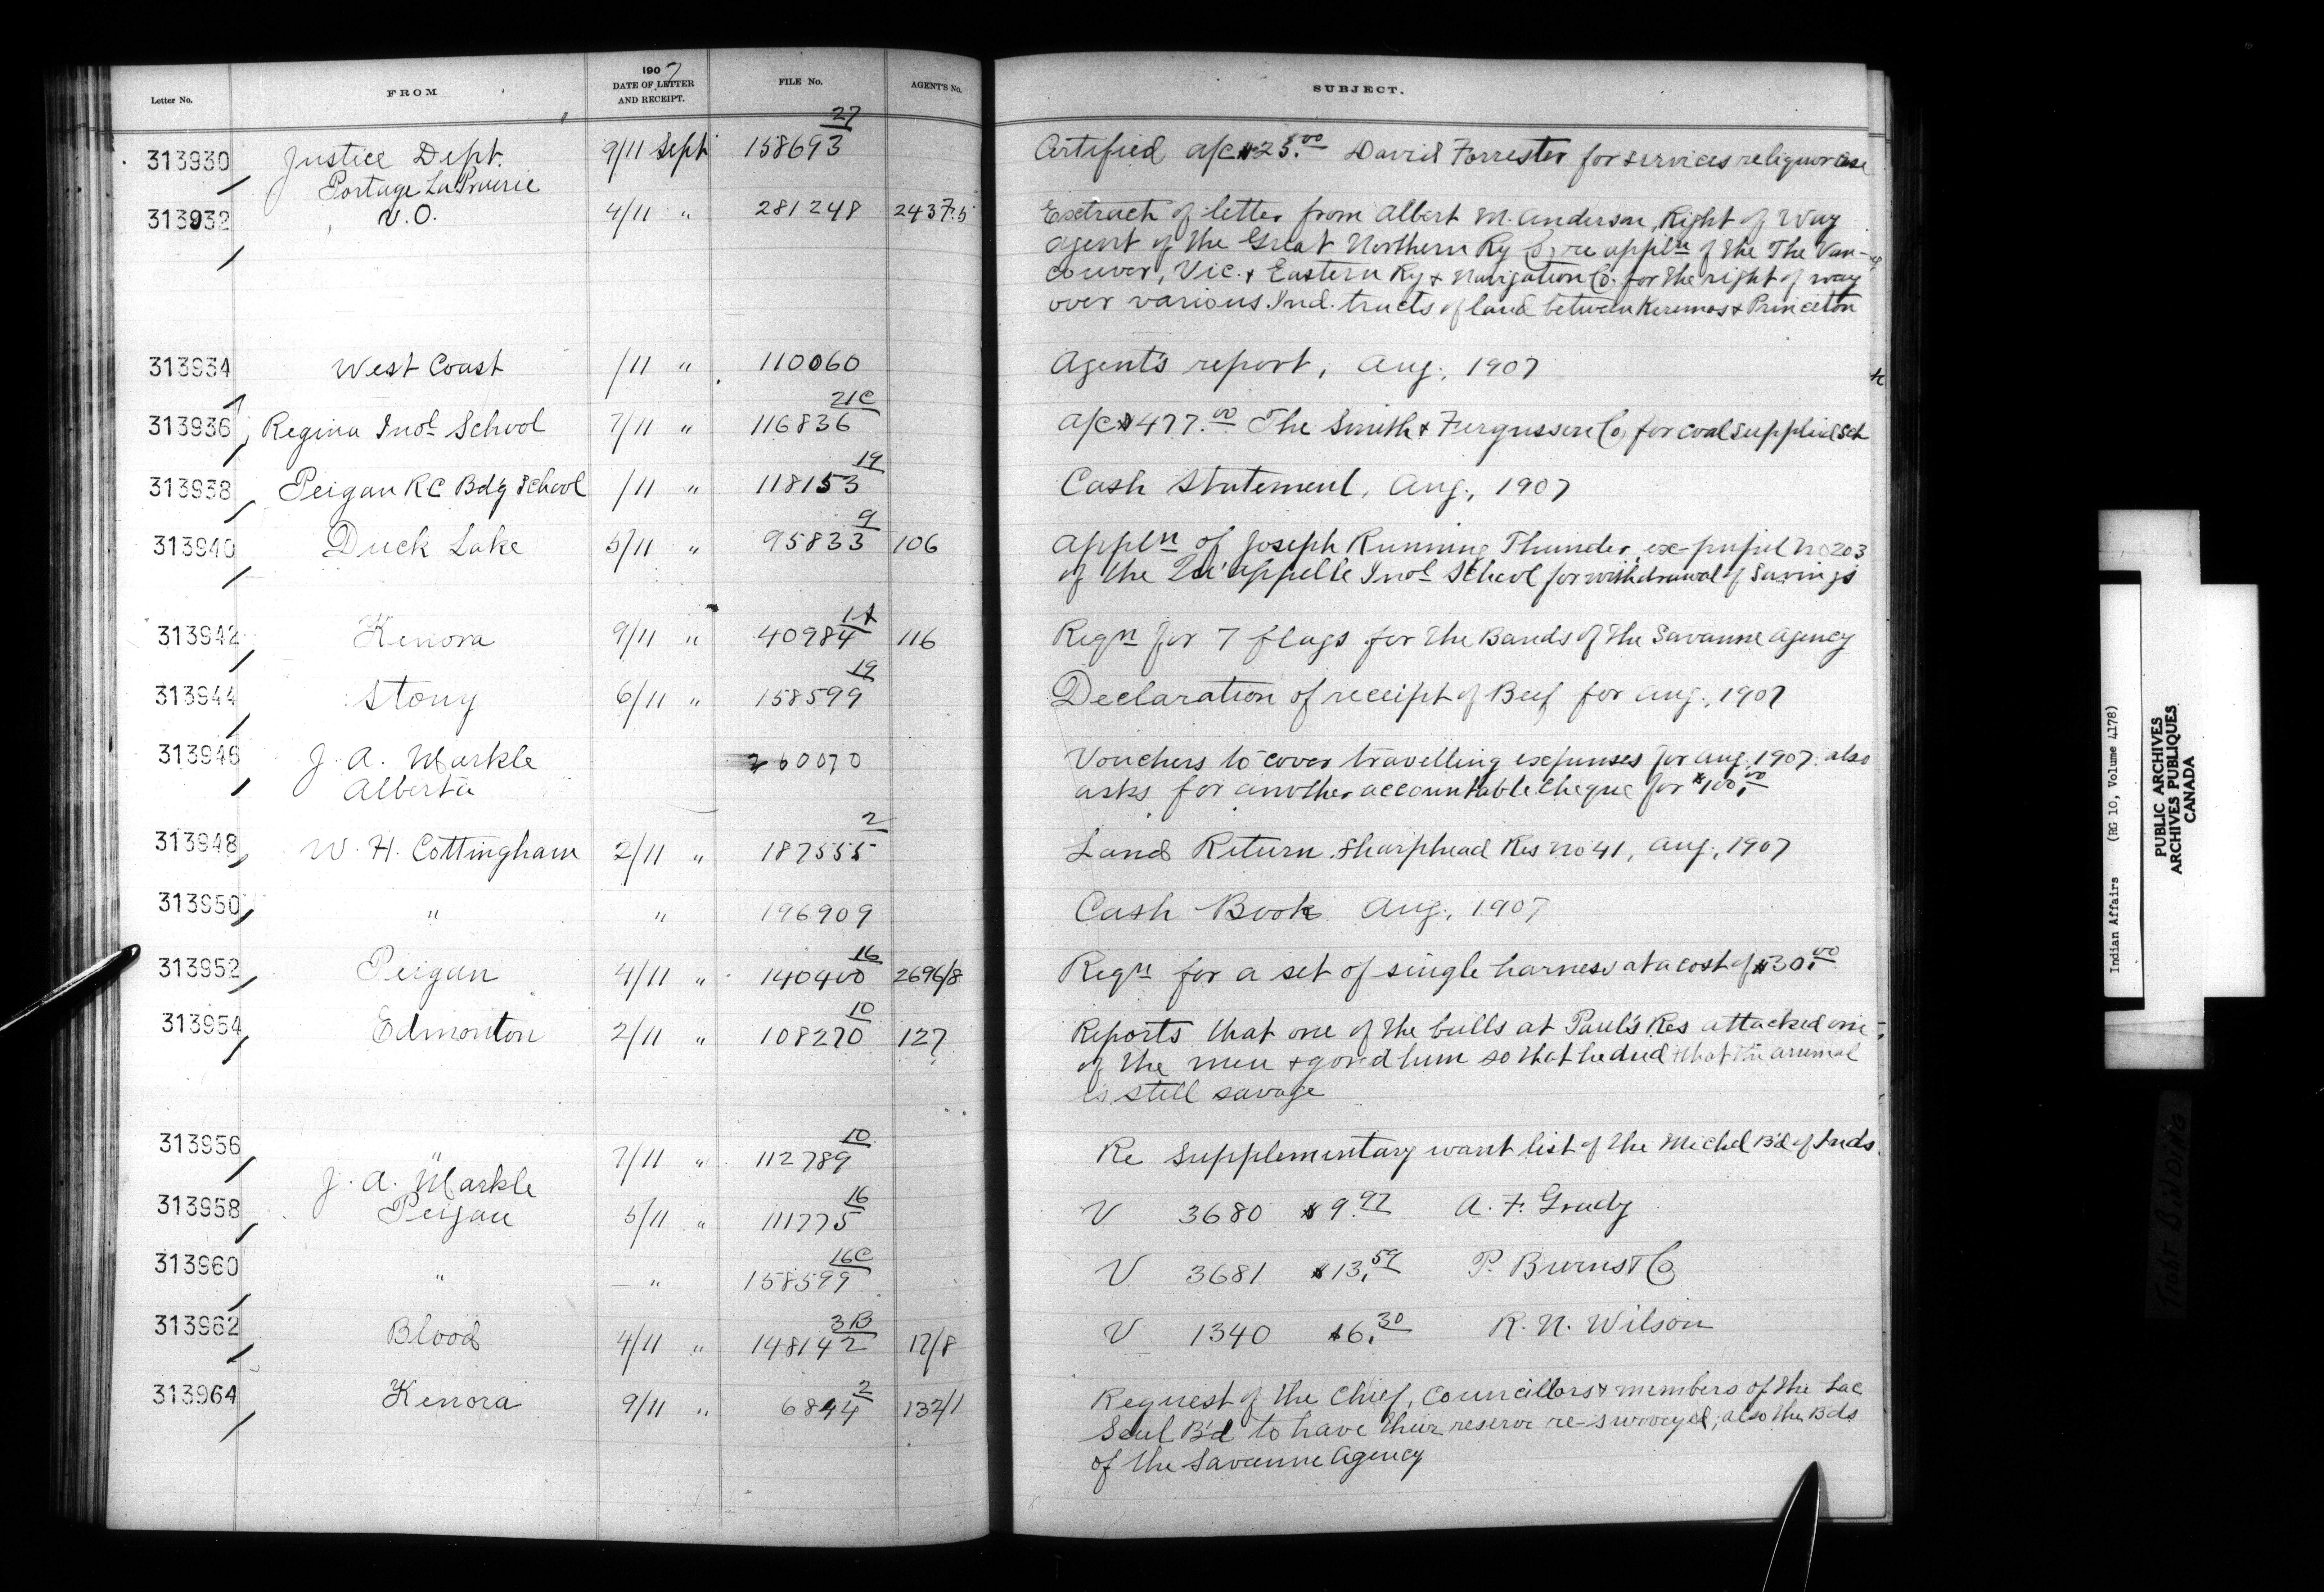 Letter No. FROM 1907 DATE OF LETTER AND RECEIPT. FILE No. AGENT'S No. SUBJECT.
313930 Justice Dept. 9/11 Sept 158693 27 Certified a/c $25.00 David Forrester for services re liquor case
Portage La Prairie
313932 V.O. 4/11 " 281248 2437.5 Extract of letter from Albert M. Anderson, Right of Way
Agent of the Great Northern Ry Co, re appln of the The Van-
couver, Vic. & Eastern Ry & Navigation Co. for the right of way
over various Ind. tracts of land between Keremos & Princeton
313934 West Coast /11 " 110060 Agent's report, Aug, 1907
313936 Regina Indl School 7/11 " 116836 21C a/c $477.00 The Smith & Fergusson Co, for coal supplied Sch
313938 Peigan RC Bdg School /11 " 118153 19 Cash Statement, Aug., 1907
313940 Duck Lake 5/11 " 95833 9 106 Appln of Joseph Running Thunder, ex-pupil No 203
of the Qu'appelle Indl School for withdrawal of Savings
313942 Kenora 9/11 " 40984 1A 116 Reqn for 7 flags for the Bands of the Savanne Agency
313944 Stony 6/11 " 158599 19 Declaration of receipt of Beef for Aug., 1907
313946 J. A. Markle 260070 Vouchers to cover travelling expenses for Aug. 1907. also
Alberta asks for another accountable cheque for $100.00
313948 W. H. Cottingham 2/11 " 187555 2 Land Return. Sharphead Res No 41, Aug., 1907
313950 " " 196909 Cash Book Aug., 1907
313952 Peigan 4/11 " 140400 16 2696/8 Reqn for a set of single harness at a cost of $30.00
313954 Edmonton 2/11 " 108270 10 127 Reports that one of the bulls at Paul's Res attacked one
of the men & gored him so that he died & that the animal
is still savage
313956 " 7/11 " 112789 10 Re supplementary want list of the Michel B'd of Inds.
J. A. Markle
313958 Peigan 5/11 " 111775 16 V 3680 $9.97 A. F. Grady
313960 " " 158599 16C V 3681 $13.59 P. Burns & Co
313962 Blood 4/11 " 148142 3B 17/8 V 1340 $6.30 R. N. Wilson
313964 Kenora 9/11 " 6844 2 132/1 Request of the Chief, Councillors & members of the Lac
Seul B'd to have their reserve re-surveyed; also the Bds
of the Savanne Agency
Indian Affairs (RG 10, Volume 4178)
PUBLIC ARCHIVES
ARCHIVES PUBLIQUES
CANADA